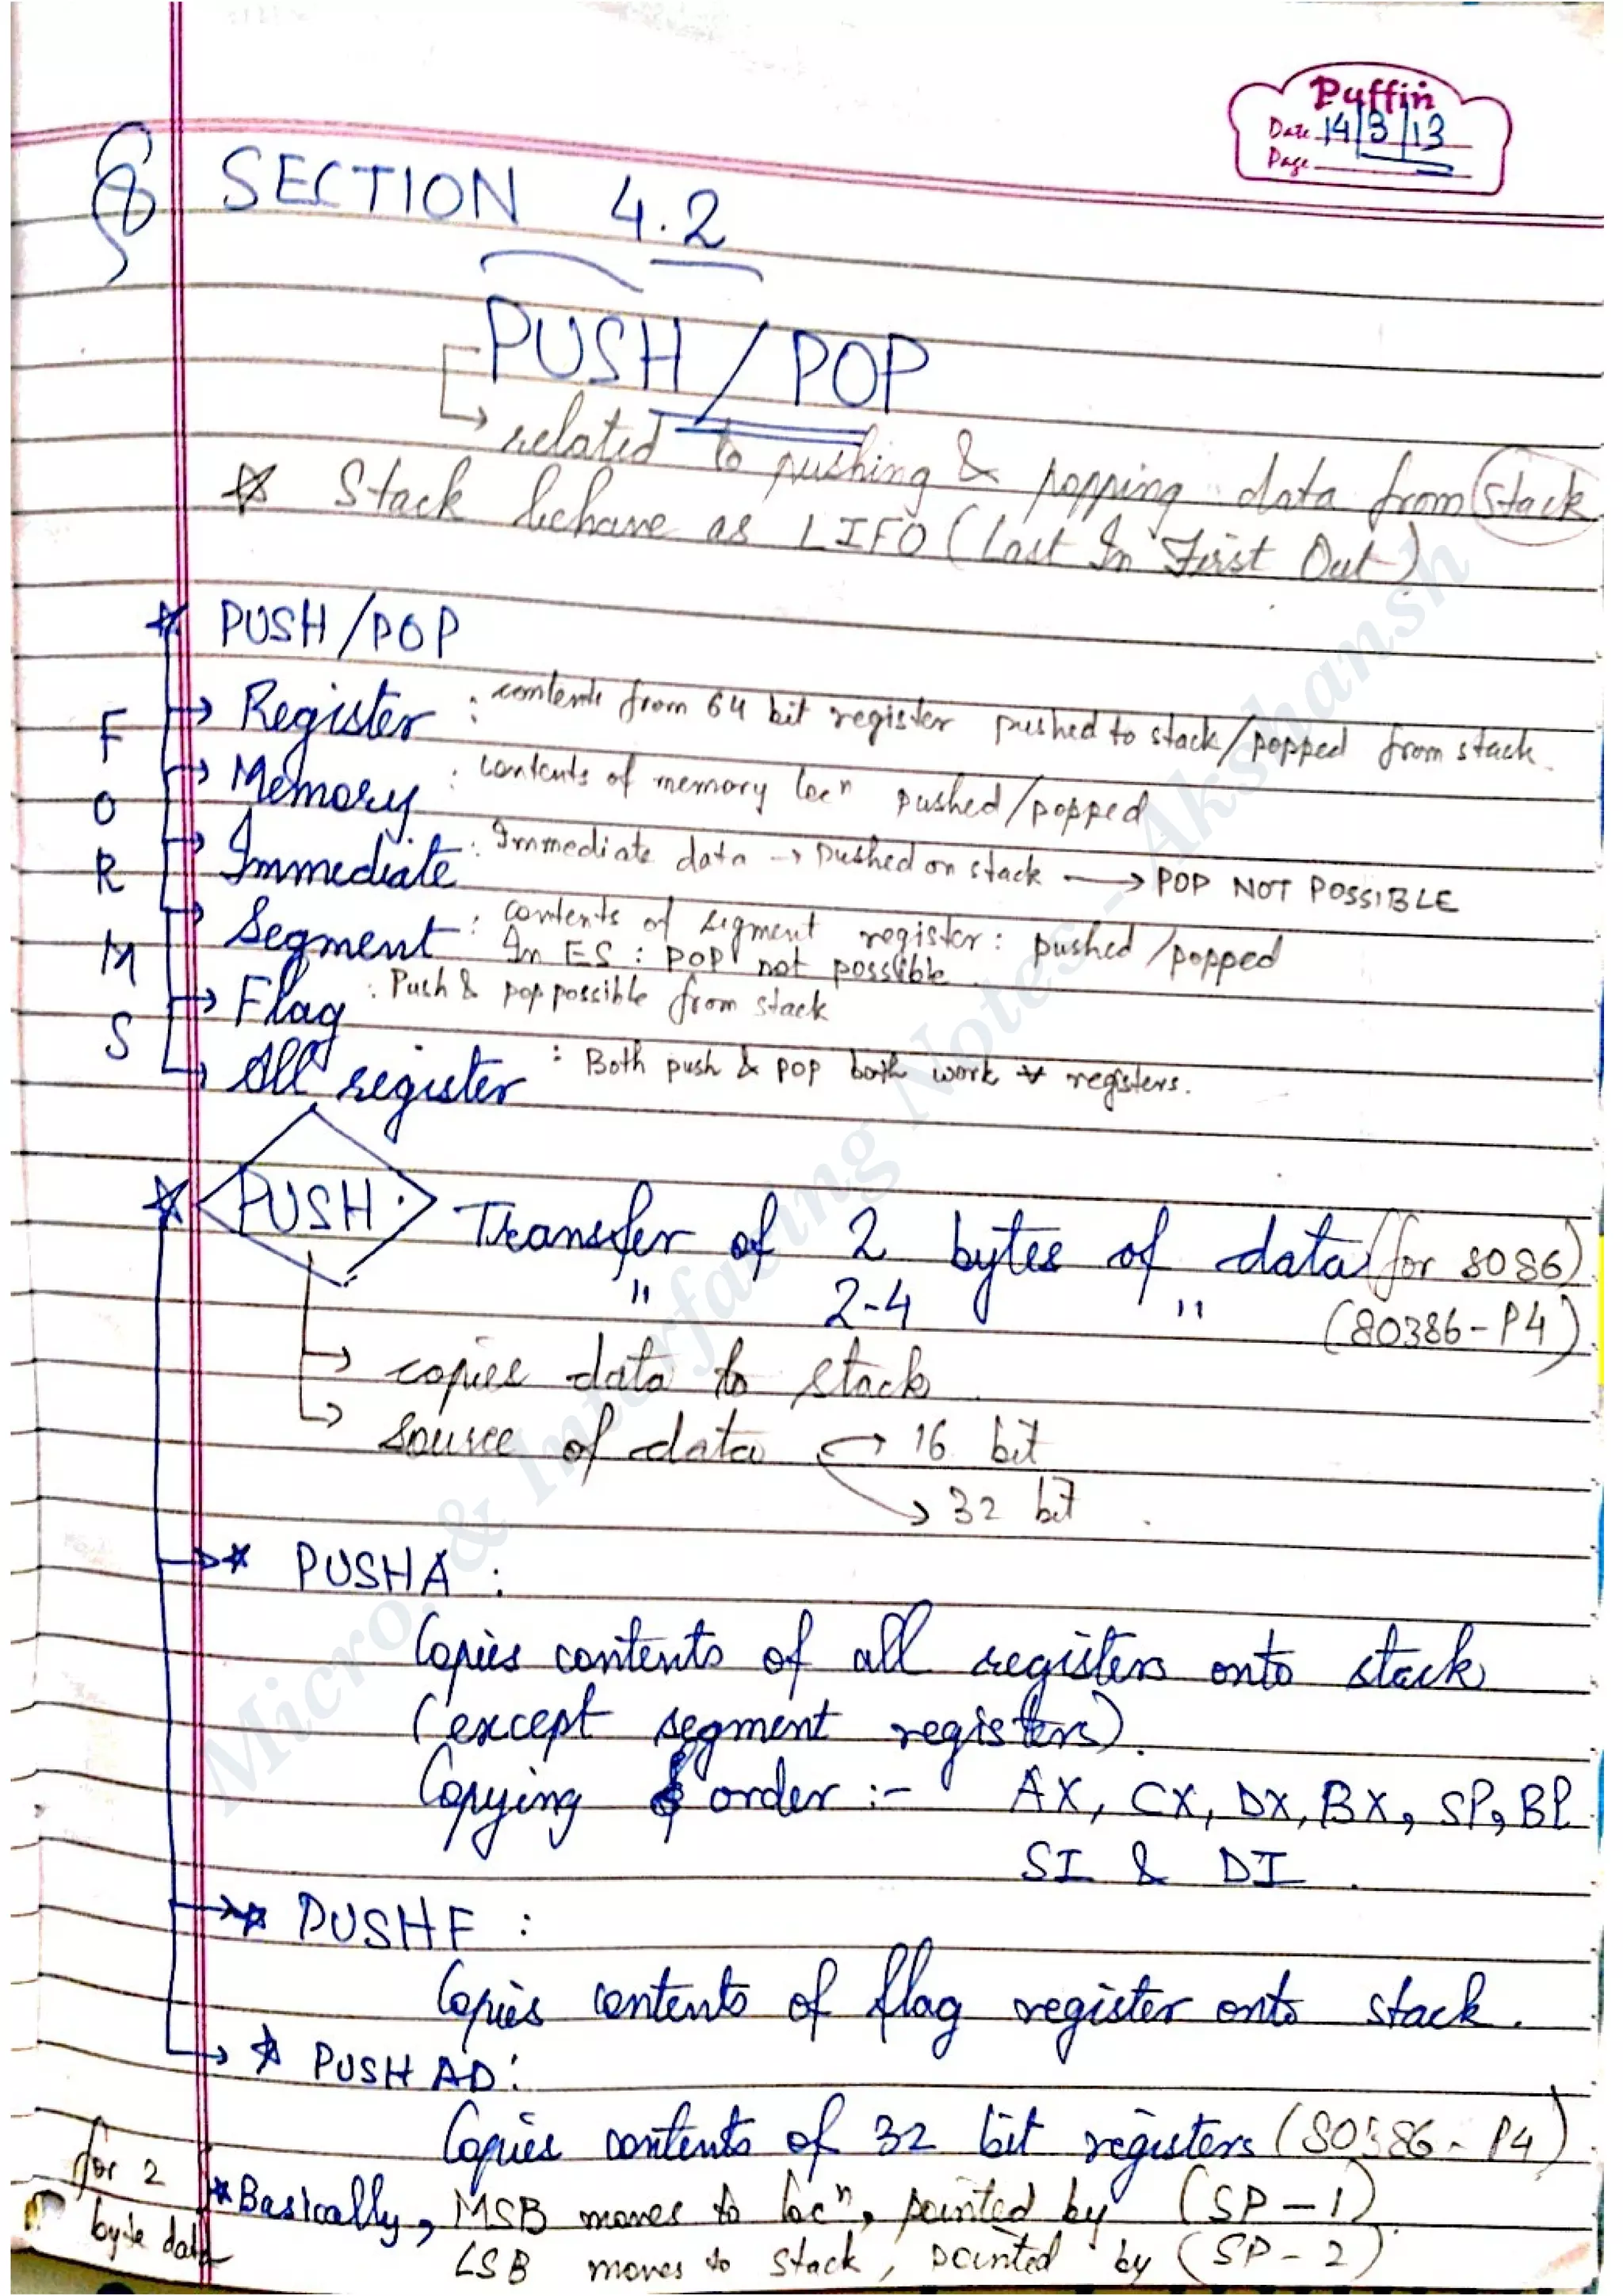 Puffin
Date 14/3/13
Page
§ SECTION 4.2
PUSH/POP
→ related to pushing & popping data from stack
☆ Stack behave as LIFO (Last In First Out)
☆ PUSH/POP
FORMS
→ Register : contents from 64 bit register pushed to stack/popped from stack.
→ Memory : contents of memory locⁿ pushed/popped
→ Immediate : Immediate data → pushed on stack → POP NOT POSSIBLE
→ Segment : contents of segment register : pushed/popped
In ES : POP not possible.
→ Flag : Push & pop possible from stack
→ All register : Both push & pop both work ∀ registers.
☆ PUSH : Transfer of 2 bytes of data (for 8086)
" 2-4 " (80386-P4)
→ copies data to stack.
→ source of data → 16 bit
→ 32 bit.
→☆ PUSHA :
Copies contents of all registers onto stack
(except segment registers).
Copying order :- AX, CX, DX, BX, SP, BP
SI & DI.
→☆ PUSHF :
Copies contents of flag register onto stack.
→ ☆ PUSHAD :
Copies contents of 32 bit registers (80386-P4)
for 2
byte data
*Basically, MSB moves to locⁿ, pointed by (SP-1)
LSB moves to stack, pointed by (SP-2)
Micro. & Interfacing Notes - Akshansh